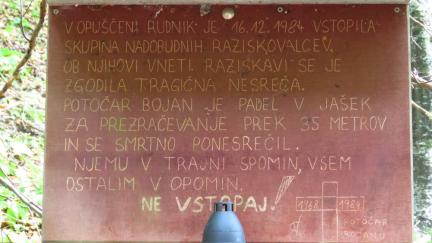 V OPUŠČENI RUDNIK JE 16.12.1984 VSTOPILA
SKUPINA NADOBUDNIH RAZISKOVALCEV.
OB NJIHOVI VNETI RAZISKAVI SE JE
ZGODILA TRAGIČNA NESREČA.
POTOČAR BOJAN JE PADEL V JAŠEK
ZA PREZRAČEVANJE PREK 35 METROV
IN SE SMRTNO PONESREČIL.
NJEMU V TRAJNI SPOMIN, VSEM
OSTALIM V OPOMIN.
NE VSTOPAJ!
1968 1984
POTOČAR
BOJANU